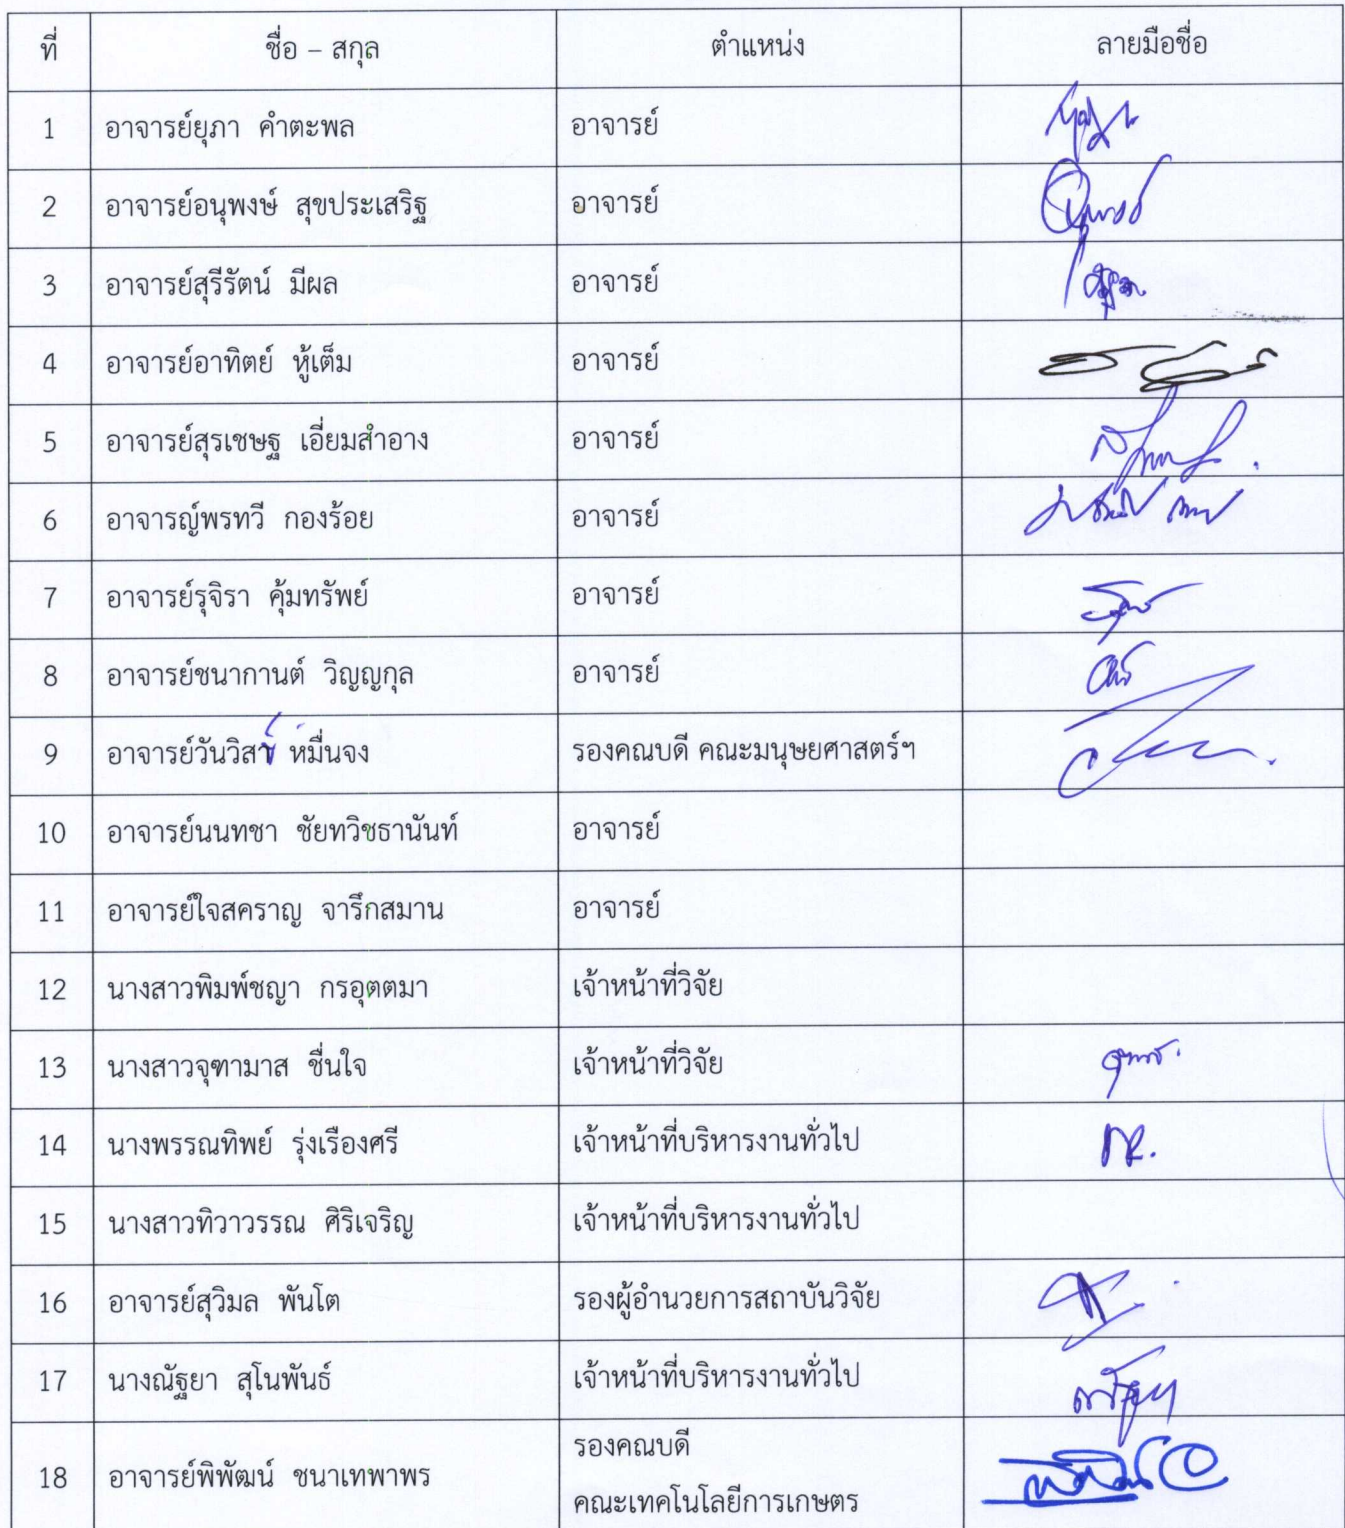 ที่ ชื่อ – สกุล ตำแหน่ง ลายมือชื่อ
1 อาจารย์ยุภา คำตะพล อาจารย์
2 อาจารย์อนุพงษ์ สุขประเสริฐ อาจารย์
3 อาจารย์สุรีรัตน์ มีผล อาจารย์
4 อาจารย์อาทิตย์ หู้เต็ม อาจารย์
5 อาจารย์สุรเชษฐ เอี่ยมสำอาง อาจารย์
6 อาจารญ์พรทวี กองร้อย อาจารย์
7 อาจารย์รุจิรา คุ้มทรัพย์ อาจารย์
8 อาจารย์ชนากานต์ วิญญกุล อาจารย์
9 อาจารย์วันวิสา หมื่นจง รองคณบดี คณะมนุษยศาสตร์ฯ
10 อาจารย์นนทชา ชัยทวิชธานันท์ อาจารย์
11 อาจารย์ใจสคราญ จารึกสมาน อาจารย์
12 นางสาวพิมพ์ชญา กรอุตตมา เจ้าหน้าที่วิจัย
13 นางสาวจุฑามาส ชื่นใจ เจ้าหน้าที่วิจัย
14 นางพรรณทิพย์ รุ่งเรืองศรี เจ้าหน้าที่บริหารงานทั่วไป
15 นางสาวทิวาวรรณ ศิริเจริญ เจ้าหน้าที่บริหารงานทั่วไป
16 อาจารย์สุวิมล พันโต รองผู้อำนวยการสถาบันวิจัย
17 นางณัฐยา สุโนพันธ์ เจ้าหน้าที่บริหารงานทั่วไป
18 อาจารย์พิพัฒน์ ชนาเทพาพร รองคณบดี
คณะเทคโนโลยีการเกษตร